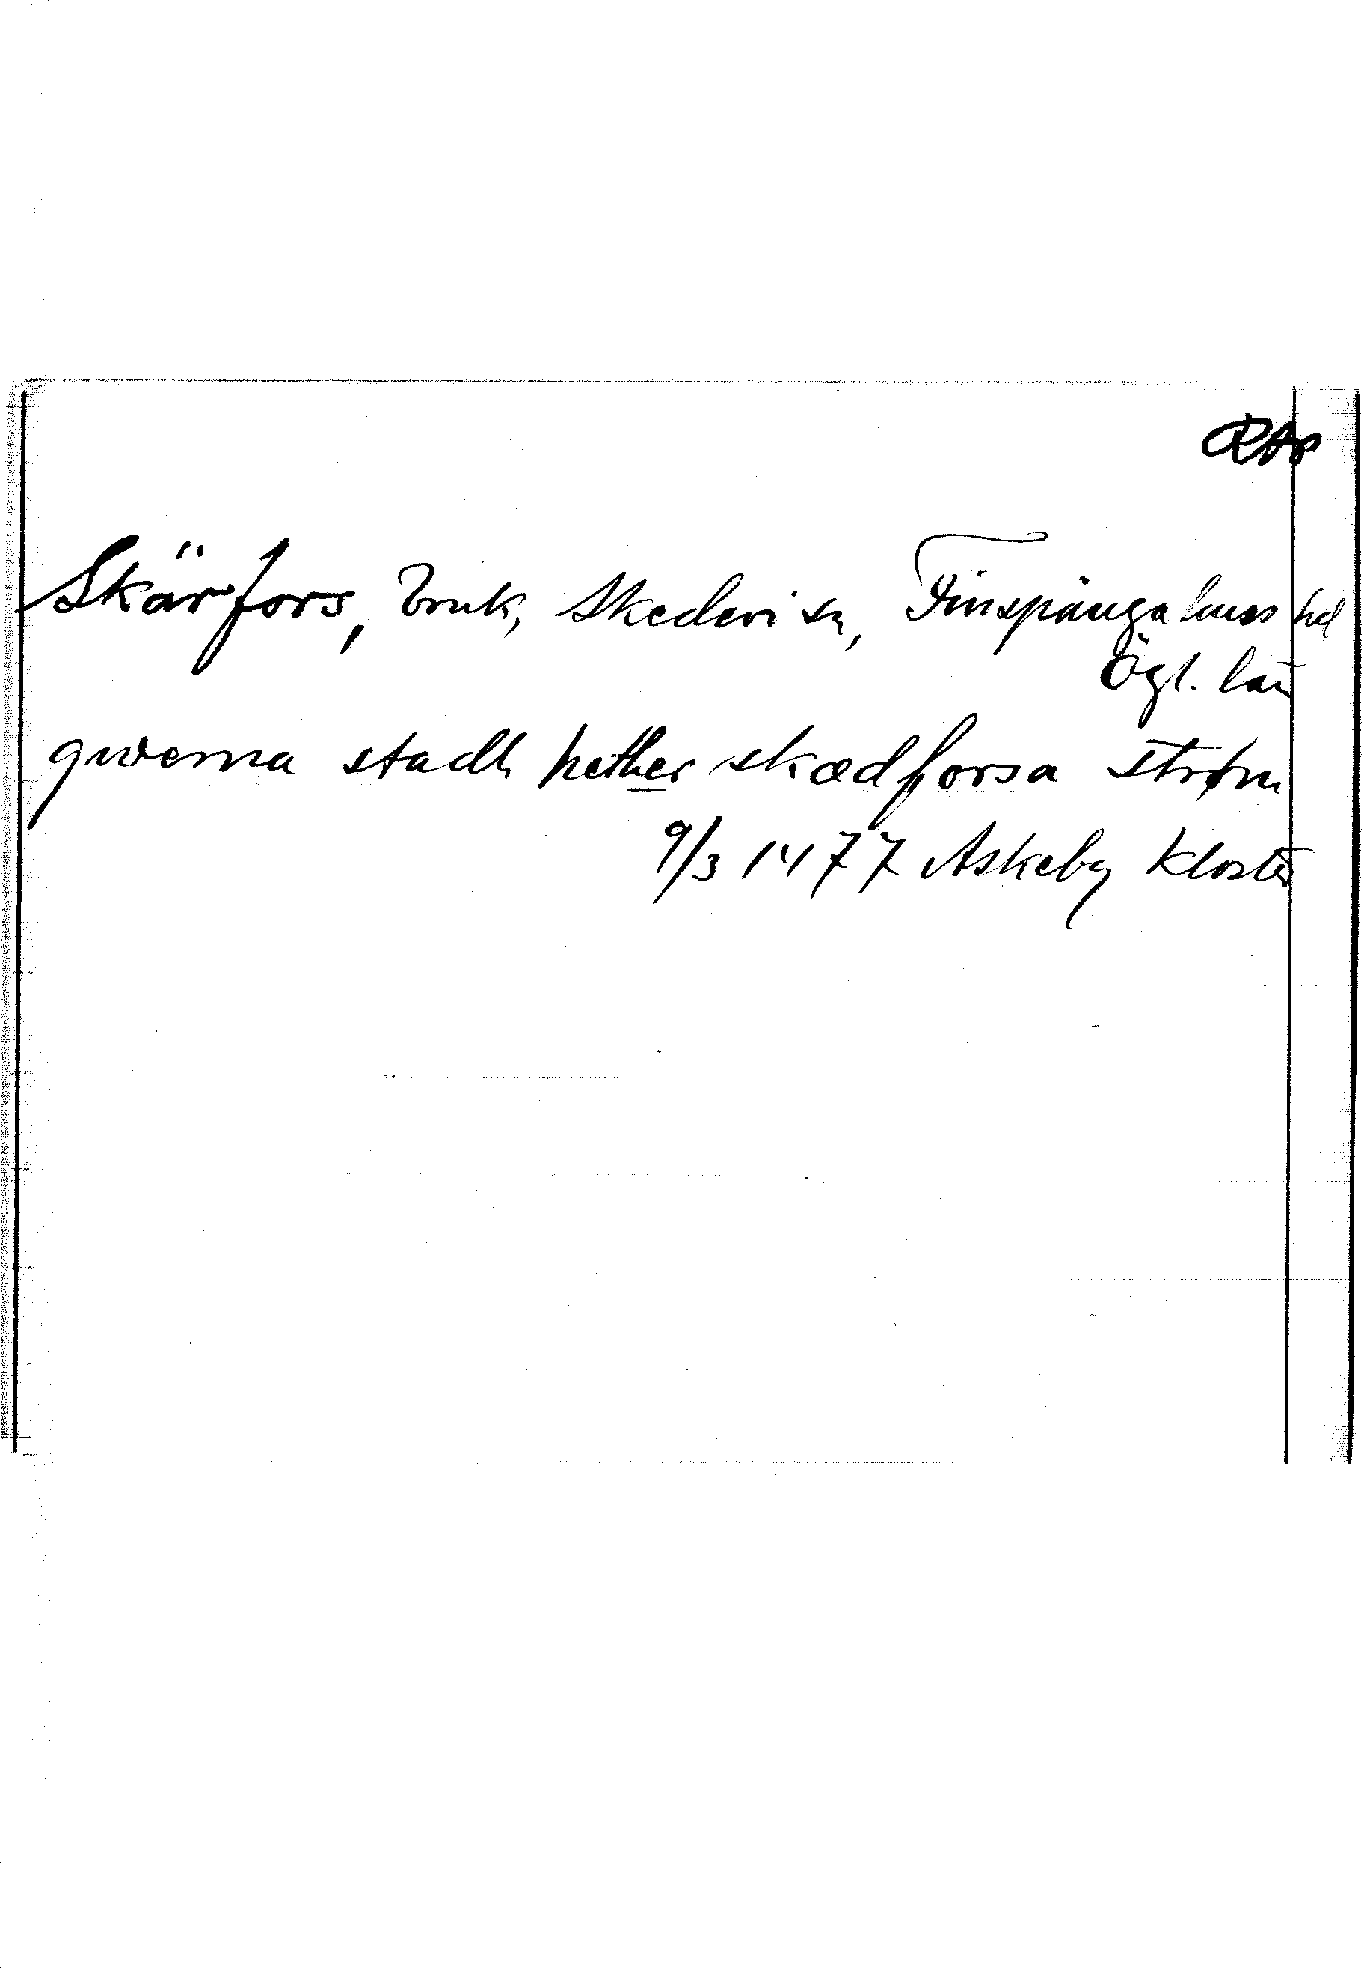 RAP
Skärfors, bruk, Skedevi sn, Finspånga läns hd
Ögl. län
qwerna stadh hether skædforsa strøm
9/3 1477 Askeby kloster